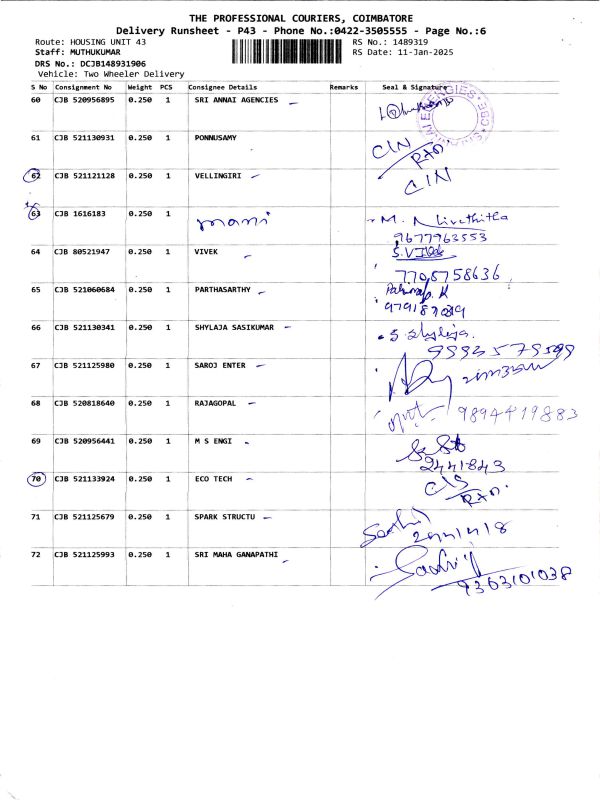 THE PROFESSIONAL COURIERS, COIMBATORE
Delivery Runsheet - P43 - Phone No.:0422-3505555 - Page No.:6
Route: HOUSING UNIT 43 RS No.: 1489319
Staff: MUTHUKUMAR RS Date: 11-Jan-2025
DRS No.: DCJB148931906
Vehicle: Two Wheeler Delivery
S No Consignment No Weight PCS Consignee Details Remarks Seal & Signature
60 CJB 520956895 0.250 1 SRI ANNAI AGENCIES
61 CJB 521130931 0.250 1 PONNUSAMY CIN
62 CJB 521121128 0.250 1 VELLINGIRI CIN
63 CJB 1616183 0.250 1 mani M. Nivethitha
9677963553
64 CJB 80521947 0.250 1 VIVEK
7705758636
65 CJB 521060684 0.250 1 PARTHASARTHY
66 CJB 521130341 0.250 1 SHYLAJA SASIKUMAR S. Shylaja
67 CJB 521125980 0.250 1 SAROJ ENTER
68 CJB 520818640 0.250 1 RAJAGOPAL 9894419883
69 CJB 520956441 0.250 1 M S ENGI
2441843
70 CJB 521133924 0.250 1 ECO TECH
71 CJB 521125679 0.250 1 SPARK STRUCTU
72 CJB 521125993 0.250 1 SRI MAHA GANAPATHI
9363101038